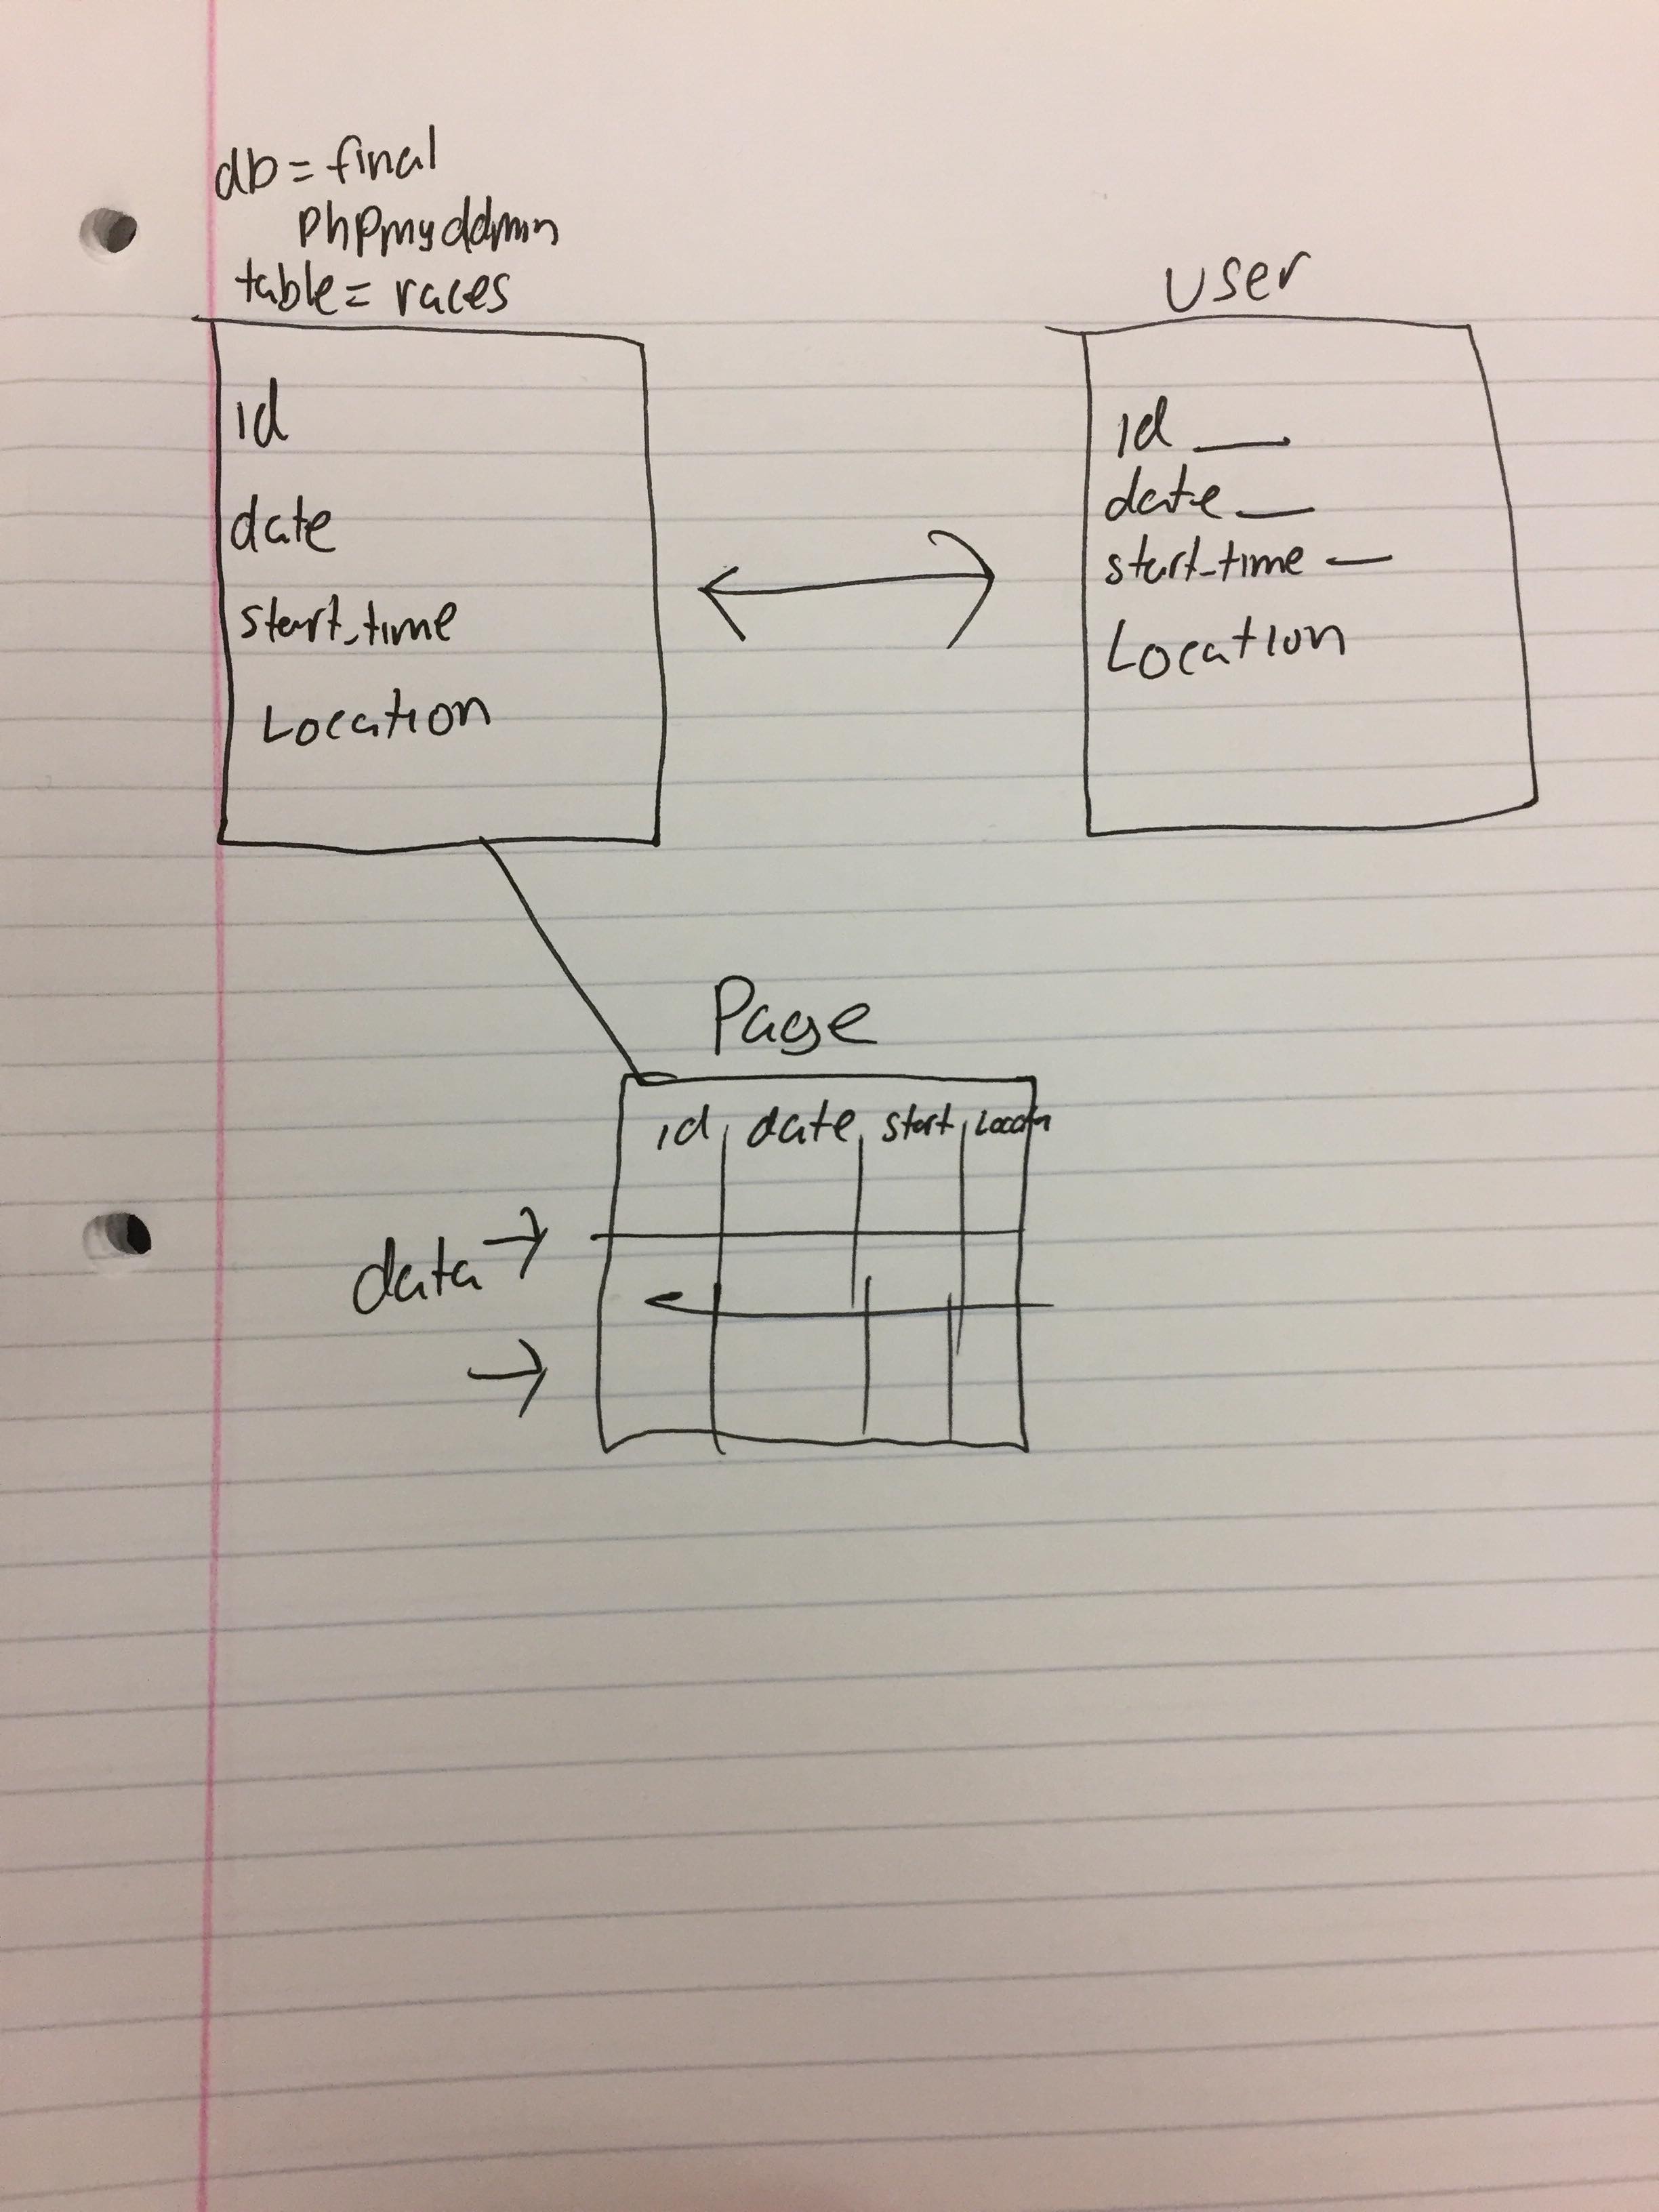 db = final
phpmyddmin
table = races
id
date
start_time
Location
user
id
date
start_time
Location
Page
id date start
data